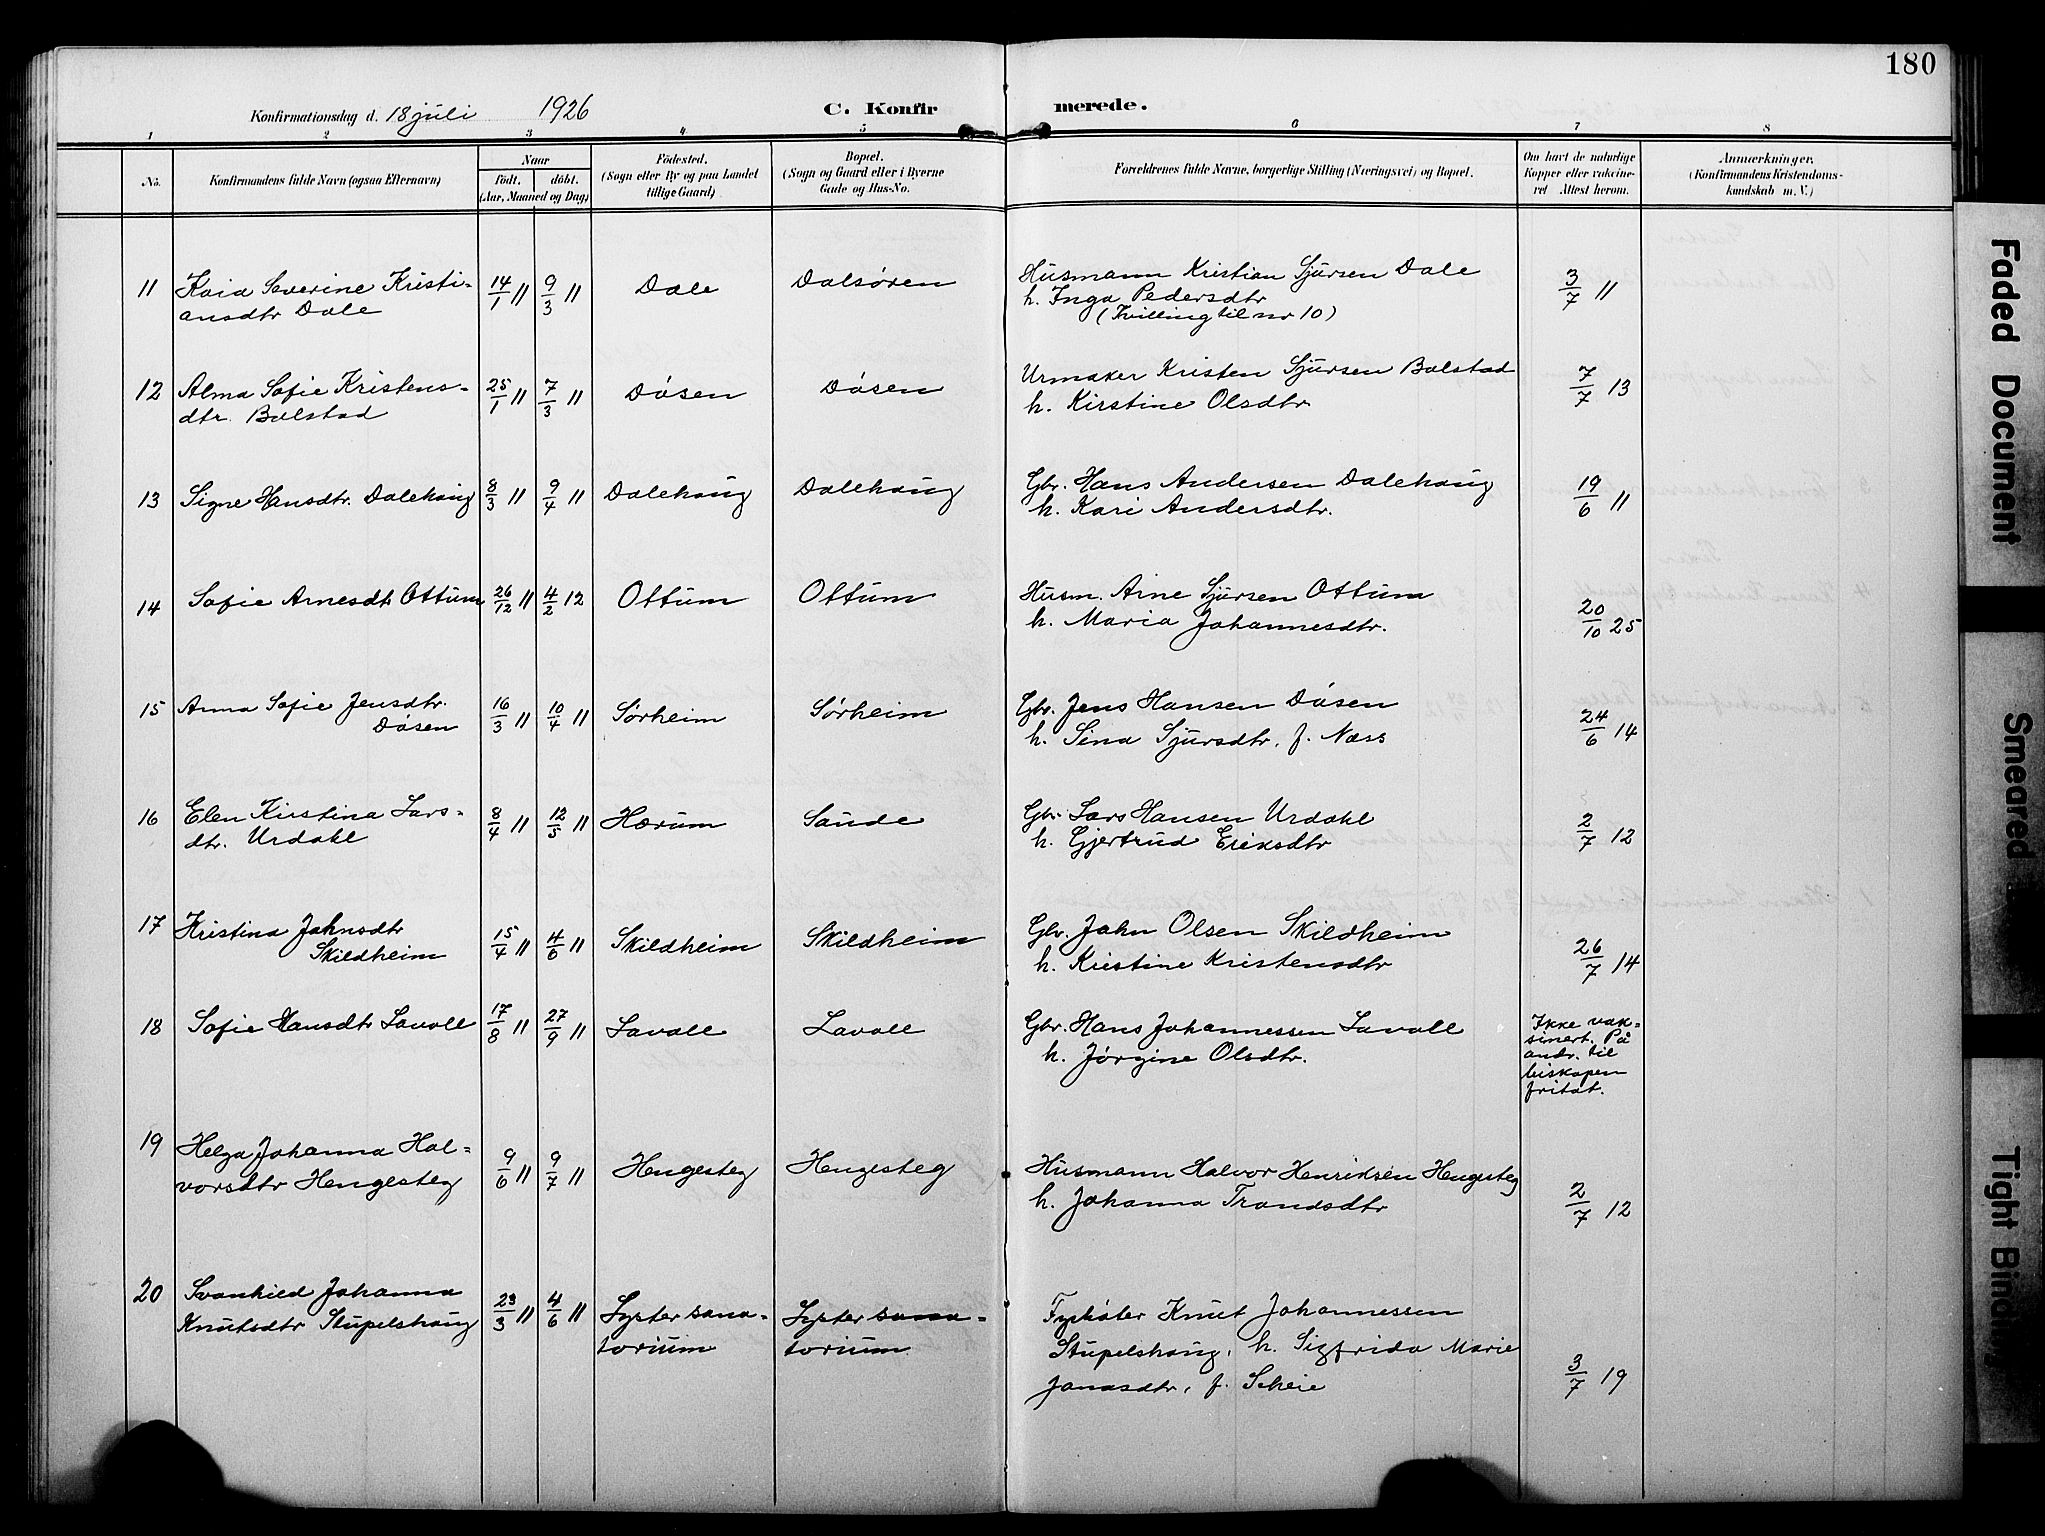 180
Konfirmationsdag d. 18 juli 1926
C. Konfirmerede.
1 2 3 4 5 6 7 8
No.
Konfirmandens fulde Navn (ogsaa Efternavn)
Naar
födt. döbt.
(Aar, Maaned og Dag)
Födested.
(Sogn eller By og paa Landet
tillige Gaard)
Bopæl.
(Sogn og Gaard eller i Byerne
Gade og Hus-No.
Forældrenes fulde Navne, borgerlige Stilling (Næringsvei) og Bopæl.
Om havt de naturlige
Kopper eller vakcine-
ret Attest herom.
Anmærkninger.
(Konfirmandens Kristendoms-
kundskab m. V.)
11 Kaia Severine Kristi- 14/1 11 9/3 11 Dale Dalsøren Husmann Kristian Sjursen Dale 3/7 11
ansdtr Dale h. Inga Pedersdtr
(Tvilling til nr 10)
12 Alma Sofie Kristens- 25/1 11 7/3 11 Døsen Døsen Urmaker Kristen Sjursen Bolstad 7/7 13
dtr. Bolstad h. Kirstine Olsdtr
13 Signe Hansdtr. Dalehaug 8/3 11 9/4 11 Dalehaug Dalehaug Gbr. Hans Andersen Dalehaug 19/6 11
h. Kari Andersdtr.
14 Sofie Arnesdtr Ottum 26/12 11 4/2 12 Ottum Ottum Husm. Arne Sjursen Ottum
h. Maria Johannesdtr. 20/10 25
15 Anna Sofie Jensdtr. 16/3 11 10/4 11 Sørheim Sørheim Gbr. Jens Hansen Døsen
Døsen h. Sina Sjursdtr. f. Næss 24/6 14
16 Elen Kirstina Lars- 8/4 11 12/5 11 Hærum Saude Gbr. Lars Hansen Urdahl
dtr. Urdahl h. Gjertrud Eriksdtr 2/7 12
17 Kristina Johnsdtr Gbr. John Olsen Skildheim
Skildheim 15/4 11 4/6 11 Skildheim Skildheim h. Kristine Kristensdtr 26/7 14
18 Sofie Hansdtr Lavoll 17/8 11 27/9 11 Lavoll Lavoll Gbr. Hans Johannessen Lavoll Ikke vak-
h. Jørgine Olsdtr. sinert. På
andr. til
biskopen
fritat.
19 Helga Johanna Hal-
vorsdtr Hengesteg 9/6 11 9/7 11 Hengesteg Hengesteg Husmann Halvor Henriksen Hengesteg
h. Johanna Trondsdtr 2/7 12
20 Svanhild Johanna
Knutsdtr Stupelshaug 23/3 11 4/6 11 Lyster sana- Lyster sana- Fyrbøter Knut Johannessen
torium torium Stupelshaug, h. Sigfrida Marie
Jonasdtr, f. Scheie 3/7 19
Faded Document
Smeared
Tight Binding